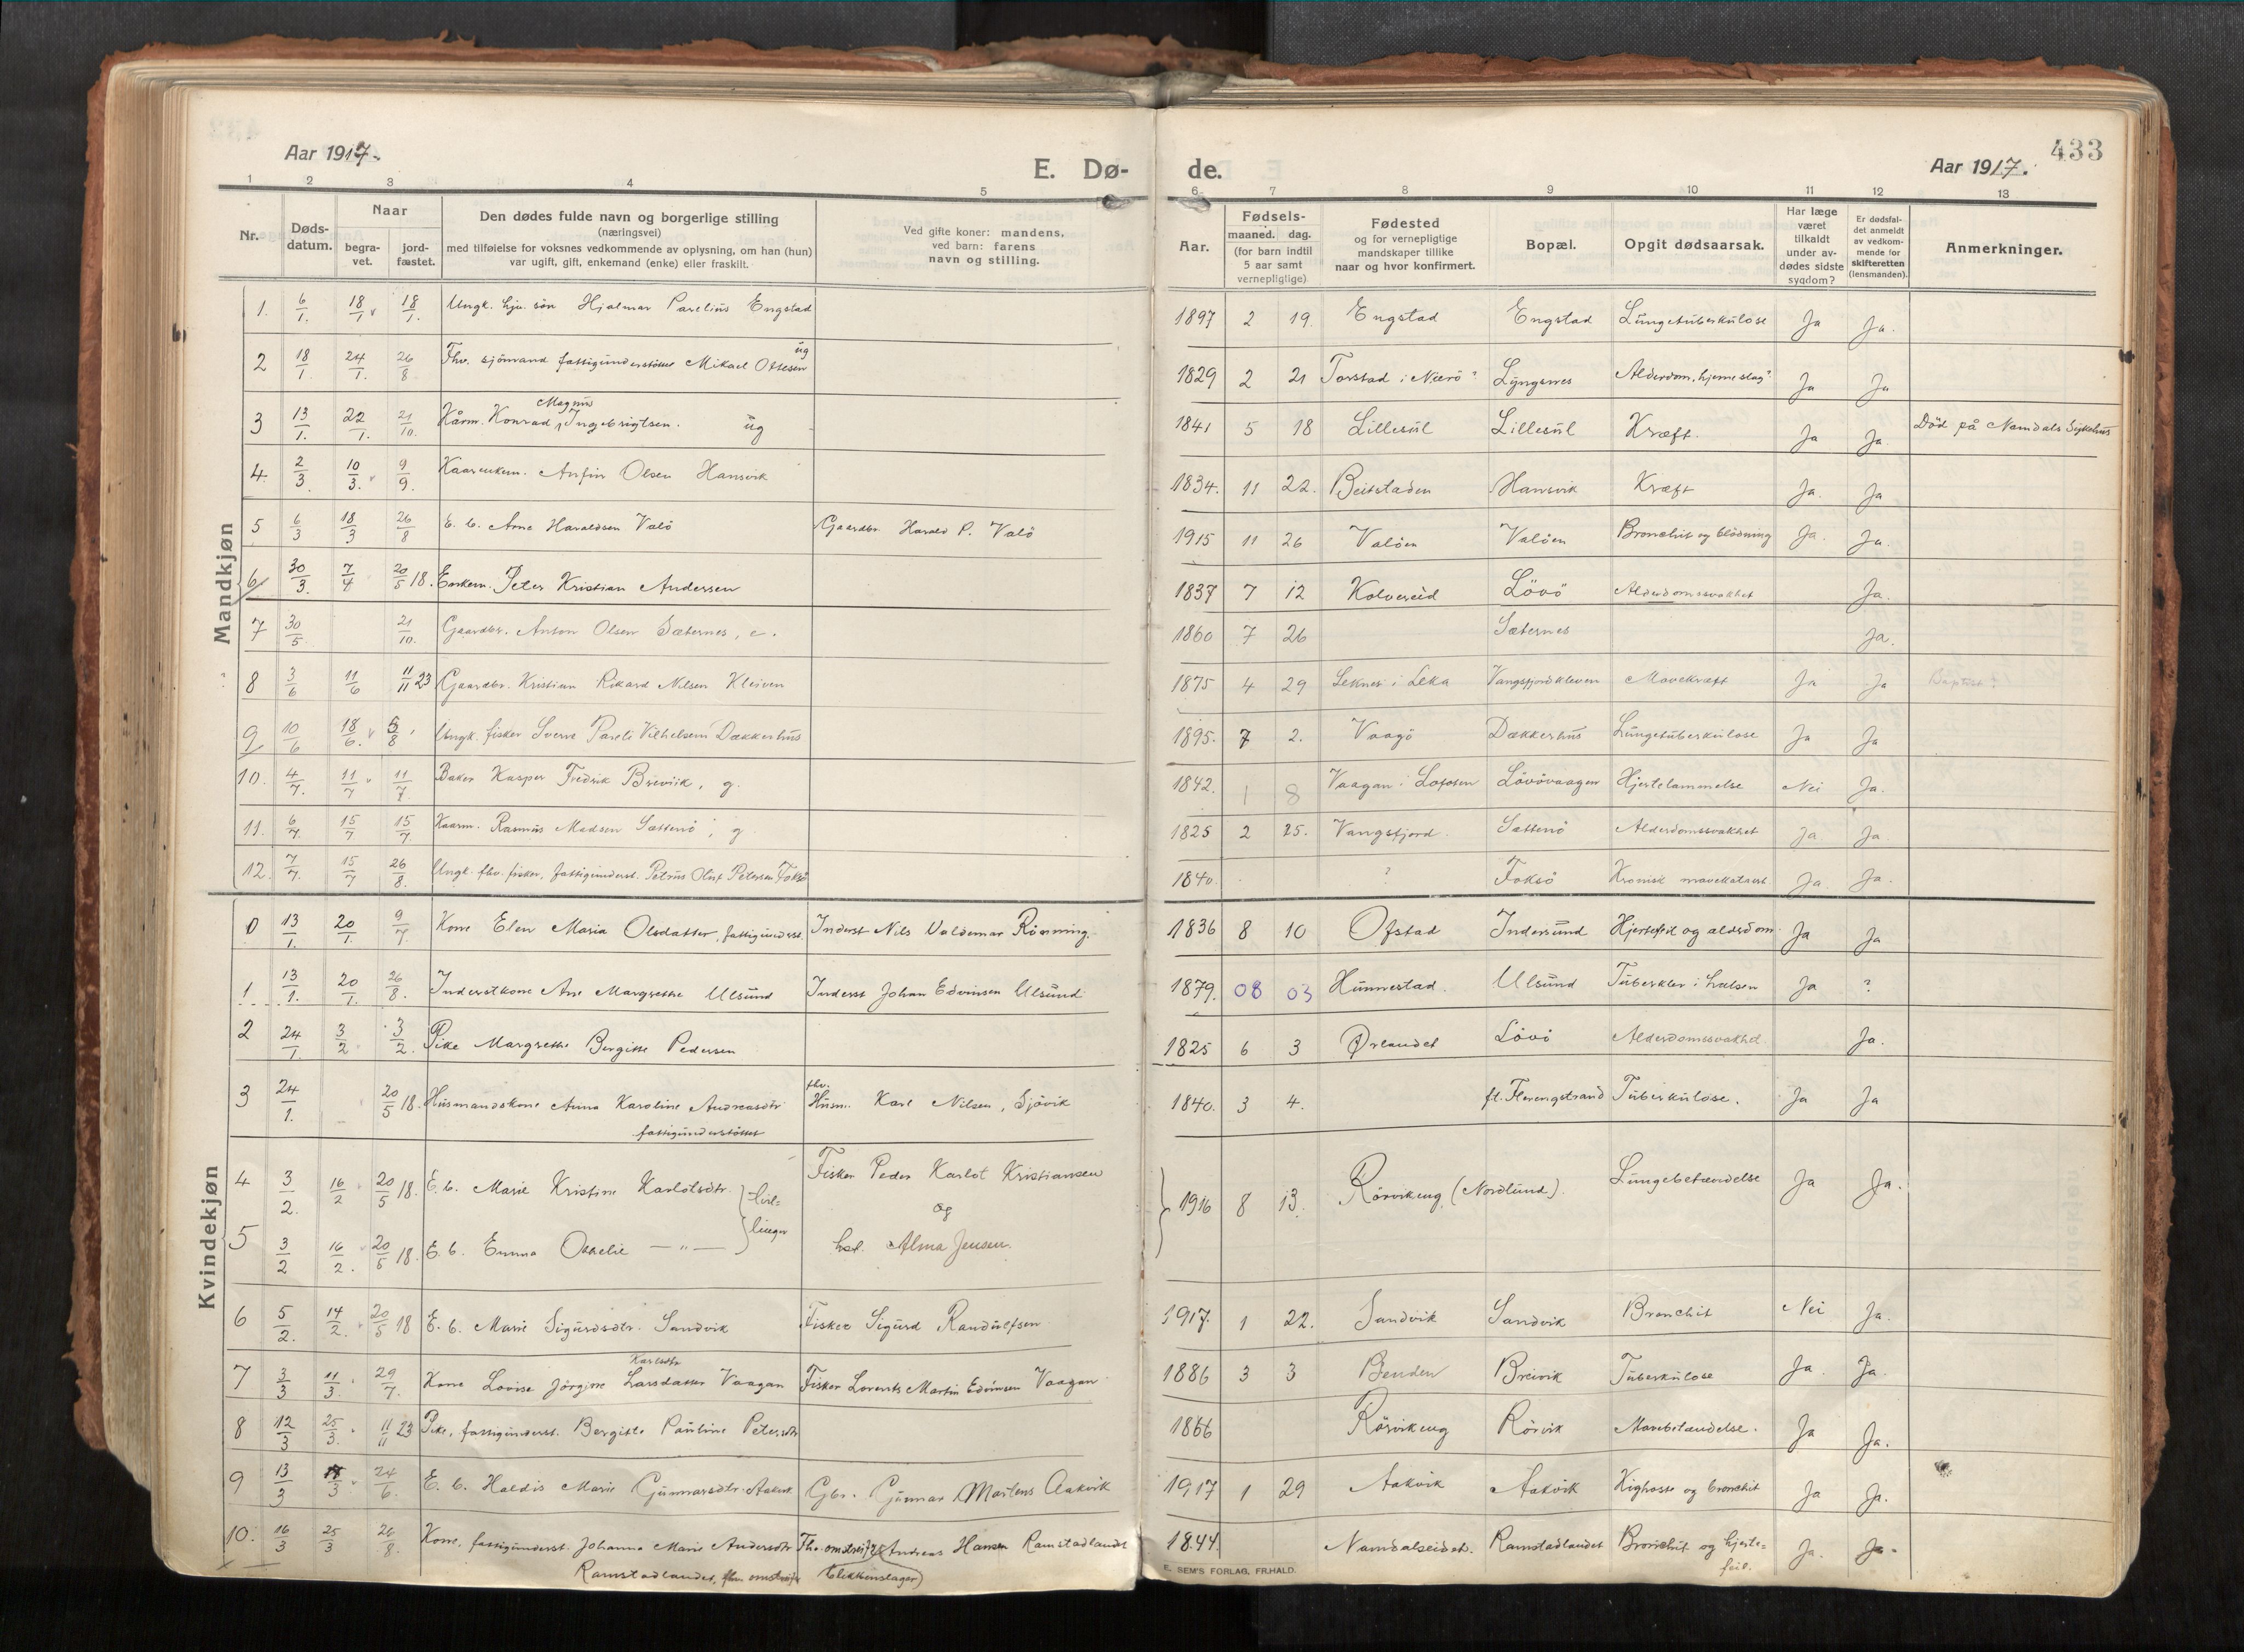 433
Aar 1917.
E. Dø-
de.
Aar 1917.
1 2 3 4 5 6 7 8 9 10 11 12 13
Nr.
Døds-
datum.
Naar
begra-
vet.
jord-
fæstet.
Den dødes fulde navn og borgerlige stilling
(næringsvei)
med tilføielse for voksnes vedkommende av oplysning, om han (hun)
var ugift, gift, enkemand (enke) eller fraskilt.
Ved gifte koner: mandens,
ved barn: farens
navn og stilling.
Aar.
Fødsels-
maaned. dag.
(for barn indtil
5 aar samt
vernepligtige)
Fødested
og for vernepligtige
mandskaper tillike
naar og hvor konfirmert.
Bopæl.
Opgit dødsaarsak.
Har læge
været
tilkaldt
under av-
dødes sidste
sygdom?
Er dødsfal-
det anmeldt
av vedkom-
mende for
skifteretten
(lensmanden).
Anmerkninger.
Mandkjøn
1. 6/1. 18/1 18/1. Ungk. hjv. søn Hjalmar Parelius Engstad 1897 2 19. Engstad Engstad Lungetuberkulose Ja Ja.
2 18/1. 24/1. 26/8 Fhv. sjömand fattigunderstöttet Mikael Ottesen ug 1829 2 21 Torstad i Nærö? Lyngsnes Alderdom, hjerneslag? Ja Ja
3 13/1. 22/1. 21/10. Kårm. Konrad Magnus Ingebrigtsen. ug 1841 5 18 Lillesul Lillesul Kræft. Ja Ja. Död på Namdals Sykehus
4. 2/3. 10/3. 9/9. Kaarenkem. Anfin Olsen Hansvik 1834. 11 22. Beitstaden Hansvik Kræft Ja. Ja
5 6/3 18/3 26/8 E. b. Arne Haraldsen Valö Gaardbr. Harald P. Valö 1915 11 26 Valöen Valöen Bronchit og blödning Ja. Ja.
6 30/3. 7/4 20/5 18. Enkem. Peter Kristian Andersen 1837 7 12 Kolvereid Lövö Alderdomssvakhet Ja.
7 30/5. 21/10. Gaardbr. Anton Olsen Sæternes, e. 1860 7 26 Sæternes Ja.
? 8 3/6 11/6 11/11 23 Gaardbr. Kristian Rikard Nilsen Kleiven 1875 4 29 Leknes i Leka Vangsfjordkleven Mavekræft Ja Ja Baptist?
9 10/6 18/6. 5/8 Ungk. fisker Sverre Pareli Vilhelsem Dækkerhus 1895. 7 2. Vaagö Dækkerhus Lungetuberkulose Ja Ja
10. 4/7. 11/7 11/7 Baker Kasper Fredrik Breviik, g. 1842. 1 8 Vaagan i Lofoten Lövövaagen Hjertelammelse Nei Ja.
11. 6/7 15/7 15/7. Kaarm. Rasmus Madsen Sættenö, g 1825 2 25. Vangsfjord. Sættenö Alderdomssvakhet Ja Ja.
12. 7/7. 15/7 26/8. Ungk. fhv. fisker, fattigunderst. Petrus Oluf Petersen Foksö 1840. ? Foksö Kronisk mavekatarrh. Ja Ja.
Kvindekjøn
0 13/1. 20/1. 9/7. Kone Elen Maria Olsdatter, fattigunderst. Inderst Nils Valdemar Rönning. 1836 8 10 Ofstad Indersund Hjertefeil og alderdom. Ja Ja
1 13/1. 20/1. 26/8. Inderstkone Ane Margrethe Ulsund Inderst Johan Edvinsen Ulsund 1879. 08 03 Hunnestad. Ulsund Tuberkler i halsen Ja ?
2 24/1. 3/2 3/2. Pike Margrethe Bergitte Pedersen 1825 6 3 Ørlandet Lövö Alderdomssvakhet Ja.
3 24/1. 20/5 18. Husmandskone Anna Karoline Andreasdtr fattigunderstöttet fhv. Husm. Karl Nilsen, Sjövik 1840. 3 4. fl. Flerengstrand Tuberkulose. Ja Ja
4 3/2. 16/2 20/5 18. E. b. Marie Kristine Karlotsdtr. tvil- Fisker Peder Karlot Kristiansen 1916 8 13. Rörvikeng (Nordlund). Lungebetændelse Ja Ja.
5 3/2 16/2. 20/5 18. E. b. Emma Ovrelie — " — linger og hst. Alma Jensen.
6 5/2. 14/2. 20/5 18 E. b. Marie Sigurdsdtr. Sandvik Fisker Sigurd Randulfsen 1917. 1 22. Sandvik Sandvik Bronchit Nei Ja.
7 3/3 11/3. 29/7. Kone Lovise Jörgine Karlsdtr Larsdatter Vaagan Fisker Lorents Martin Edvinsen Vaagan 1886 3 3 Benden Breivik Tuberkulose Ja. Ja.
8 12/3 25/3. 11/11 23 Pike, fattigunderst. Bergitte Pauline Petersdtr 1866 Rörvikeng Rörvik Mavebetændelse. Ja Ja.
9 13/3 18/3 24/6. E. b. Haldis Marie Gunnarsdtr. Aakvik Gbr. Gunnar Martens Aakvik 1917 1 29 Aakvik Aakvik Kighoste og bronchit Ja Ja.
10. 16/3 25/3 26/8. Kone, fattigunderst. Johanna Marie Andersdtr Fhv. omstreifer Andreas Hansen Ramstadlandet 1844. Namdalseidet. Ramstadlandet Bronchit og hjerte- Ja. Ja.
Ramstadlandet, fhv. omstreifer blikkenslager) feil.
E. SEM'S FORLAG, FR.HALD.